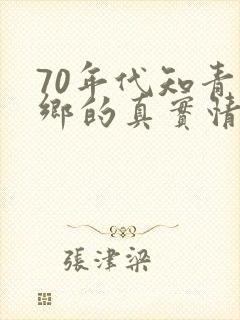 70年代知青
鄉的真實情
張津梁